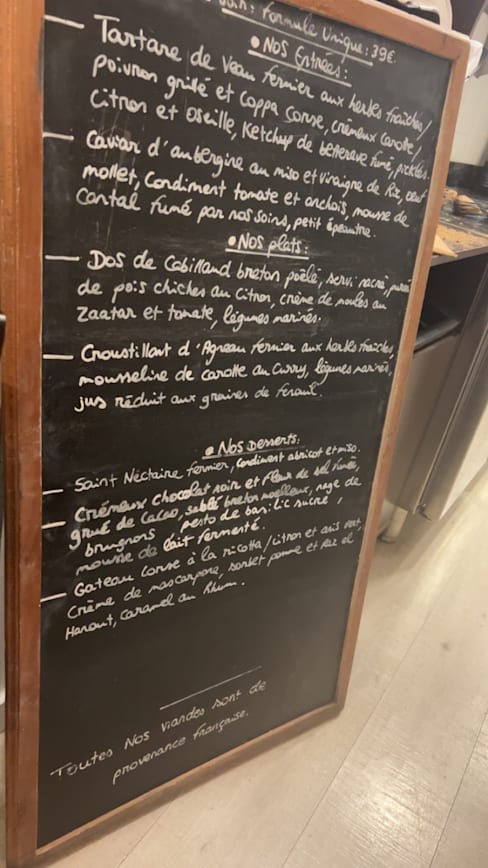 Soir: Formule Unique: 39€.
• Nos Entrées:
— Tartare de Veau fermier aux herbes fraîches,
poivron grillé et coppa corse, crémeux carotte/
citron et oseille, Ketchup de betterave fumé, pickles.
— Caviar d'aubergine au miso et vinaigre de Riz, oeuf
mollet, Condiment tomate et anchois, mousse de
cantal fumé par nos soins, petit épeautre.
• Nos plats:
— Dos de Cabillaud breton poêlé, servi nacré, purée
de pois chiches au citron, crème de moules au
Zaatar et tomate, légumes marinés.
— Croustillant d'Agneau fermier aux herbes fraîches,
mousseline de carotte au Curry, légumes marinés,
jus réduit aux graines de fenouil.
• Nos Desserts:
— Saint Nectaire fermier, condiment abricot et miso.
— Crémeux chocolat noir et fleur de sel fumée,
grué de cacao, sablé breton moelleux, nage de
brugnons, pesto de basilic sucré,
mousse de lait fermenté.
— Gateau corse à la ricotta/citron et anis vert,
Crème de mascarpone, sorbet pomme et Raz el
Hanout, caramel au Rhum.
Toutes Nos Viandes sont de
provenance française.